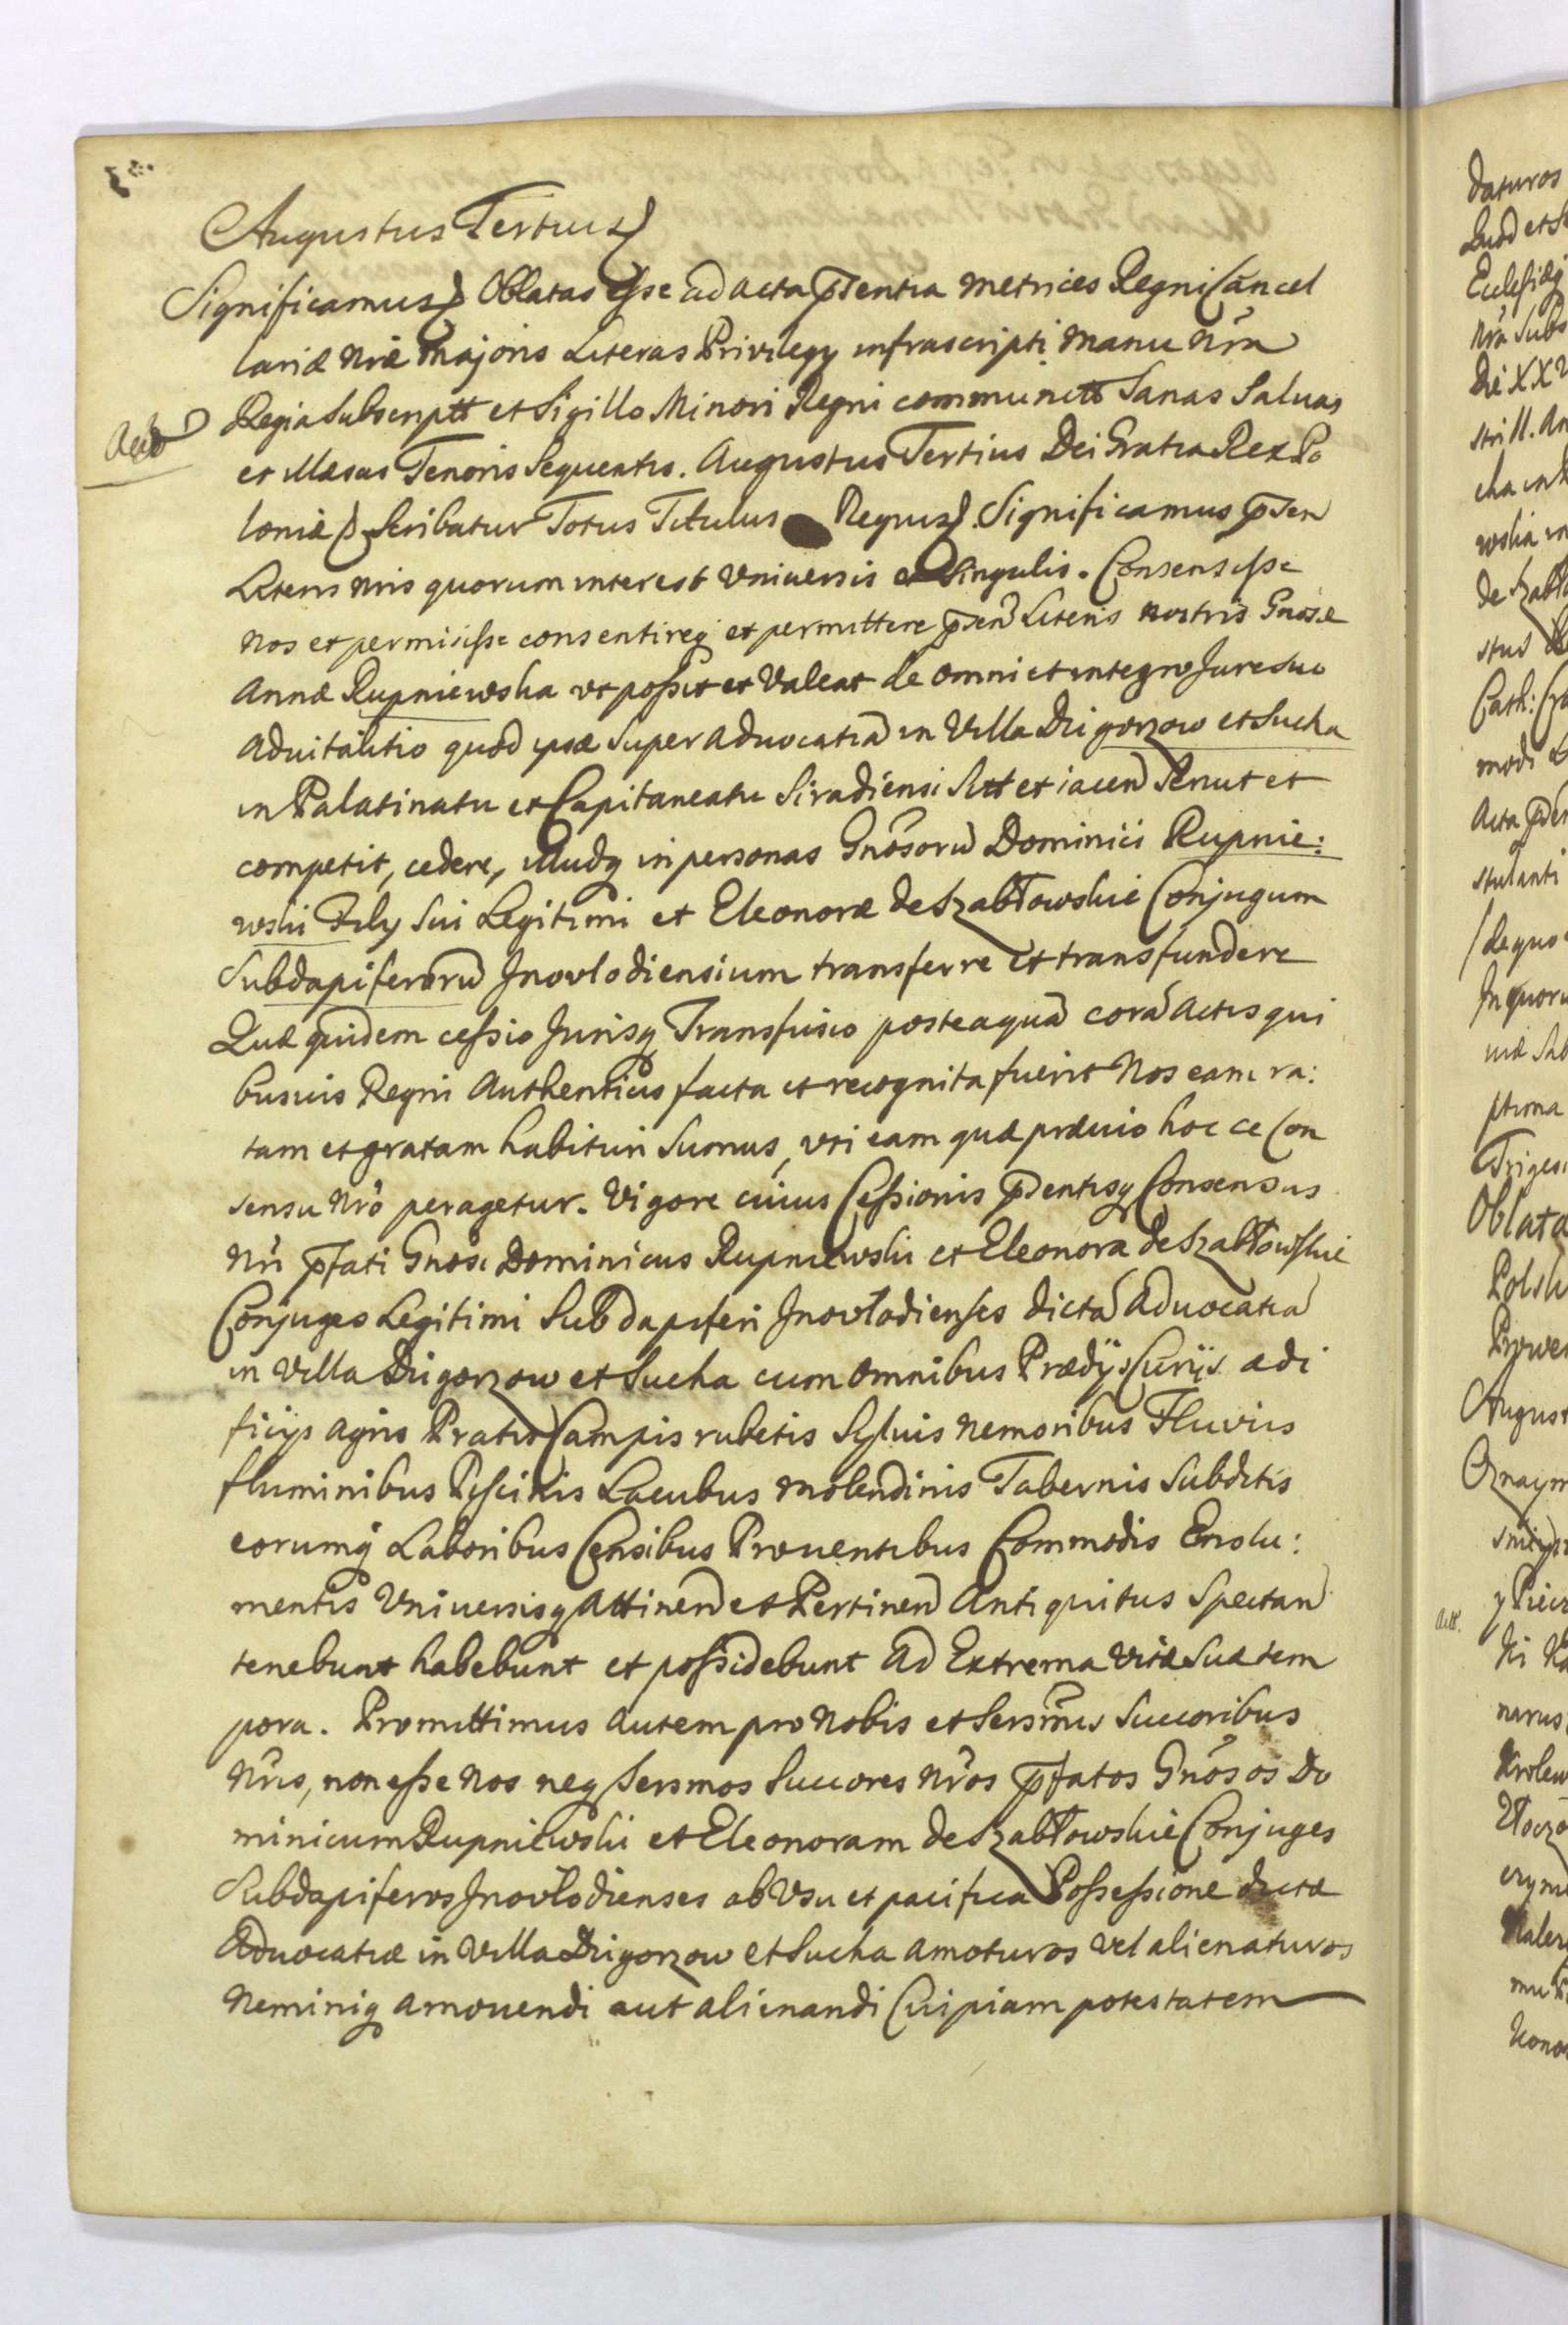 Augustus Tertius
Significamus Oblatas esse ad acta pntentia metrices Regni Cancel
lariæ nræ Majoris Literas Privilegy infrascripti manu nra
Regia Subscriptt et Sigillo Minori Regni communitt Sanas Salvas
et illæsas Tenoris Sequentis. Augustus Tertius Dei Gratia Rex Po
loniæ Scribatur Totus Titulus Regius Significamus pnten
Literis nris quorum interest Universis et Singulis. Consensisse
nos et permisisse consentireq et permittere pnten Literis nostris Gnosæ
Annæ Rupniewska ut possit et Valeat de omni et integro Jure suo
advitalitio quod ipsæ super Advocatia in Villa Drigorzow et Sucha
in Palatinatu et Capitaneatu Siradiensi Sitt et iacen Servit et
competit, cedere, illudq in personas Gnosoru Dominici Rupnie:
wski Fily Sui Legitimi et Eleonoræ de Szabłowskie Conjugum
Subdapiferoru Inovlodiensium transferre et transfundere
Quæ quidem cessio Jurisq Transfusio posteaqua cora Actis qui
busvis Regni Authenticis facta et recognita fuerit Nos eam ra:
tam et gratam habituri Sumus, uti eam quæ prævio hoc ce Con
sensu nro peragetur. Vigore cuius Cessionis pntentisq Consensus
nri pfati Gnosi Dominicus Rupniewski et Eleonora de Szabłowskie
Conjuges Legitimi Subdapiferi Inovłodienses dicta Advocatia
in Villa Drigorzow et Sucha cum omnibus Prædijs Curijs ædi
ficijs agris Pratis Campis rubetis Sylvis nemoribus Fluviis
fluminibus Piscinis Lacubus molendinis Tabernis Subditis
eorumq Laboribus Censibus Proventibus Commodis Emolu:
mentis Universisq Attinen et Pertinen Antiquitus Spectan
tenebunt habebunt et possidebunt ad Extrema vitæ Suæ tem
pora. Promittimus autem pro Nobis et Sersmis Succoribus
nris, non esse nos neq Sersmos Succores nros pfatos Gnosos Do
minicum Rupniewski et Eleonoram de Szabłowskie Conjuges
Subdapiferos Inovłodienses ab Usu et pacifica Possessione dictæ
Advocatiæ in Villa Drigorzow et Sucha amoturos vel alienaturos
Neminiq amovendi aut alienandi Cuipiam potestatem
daturos
Quod et
Ecclesiæq
nra Subs
Die XX
de Szabł
Cath: Cra
modi
Acta
stulanti
de quo
In quoru
Oblata
Polsk
August
Oznaym